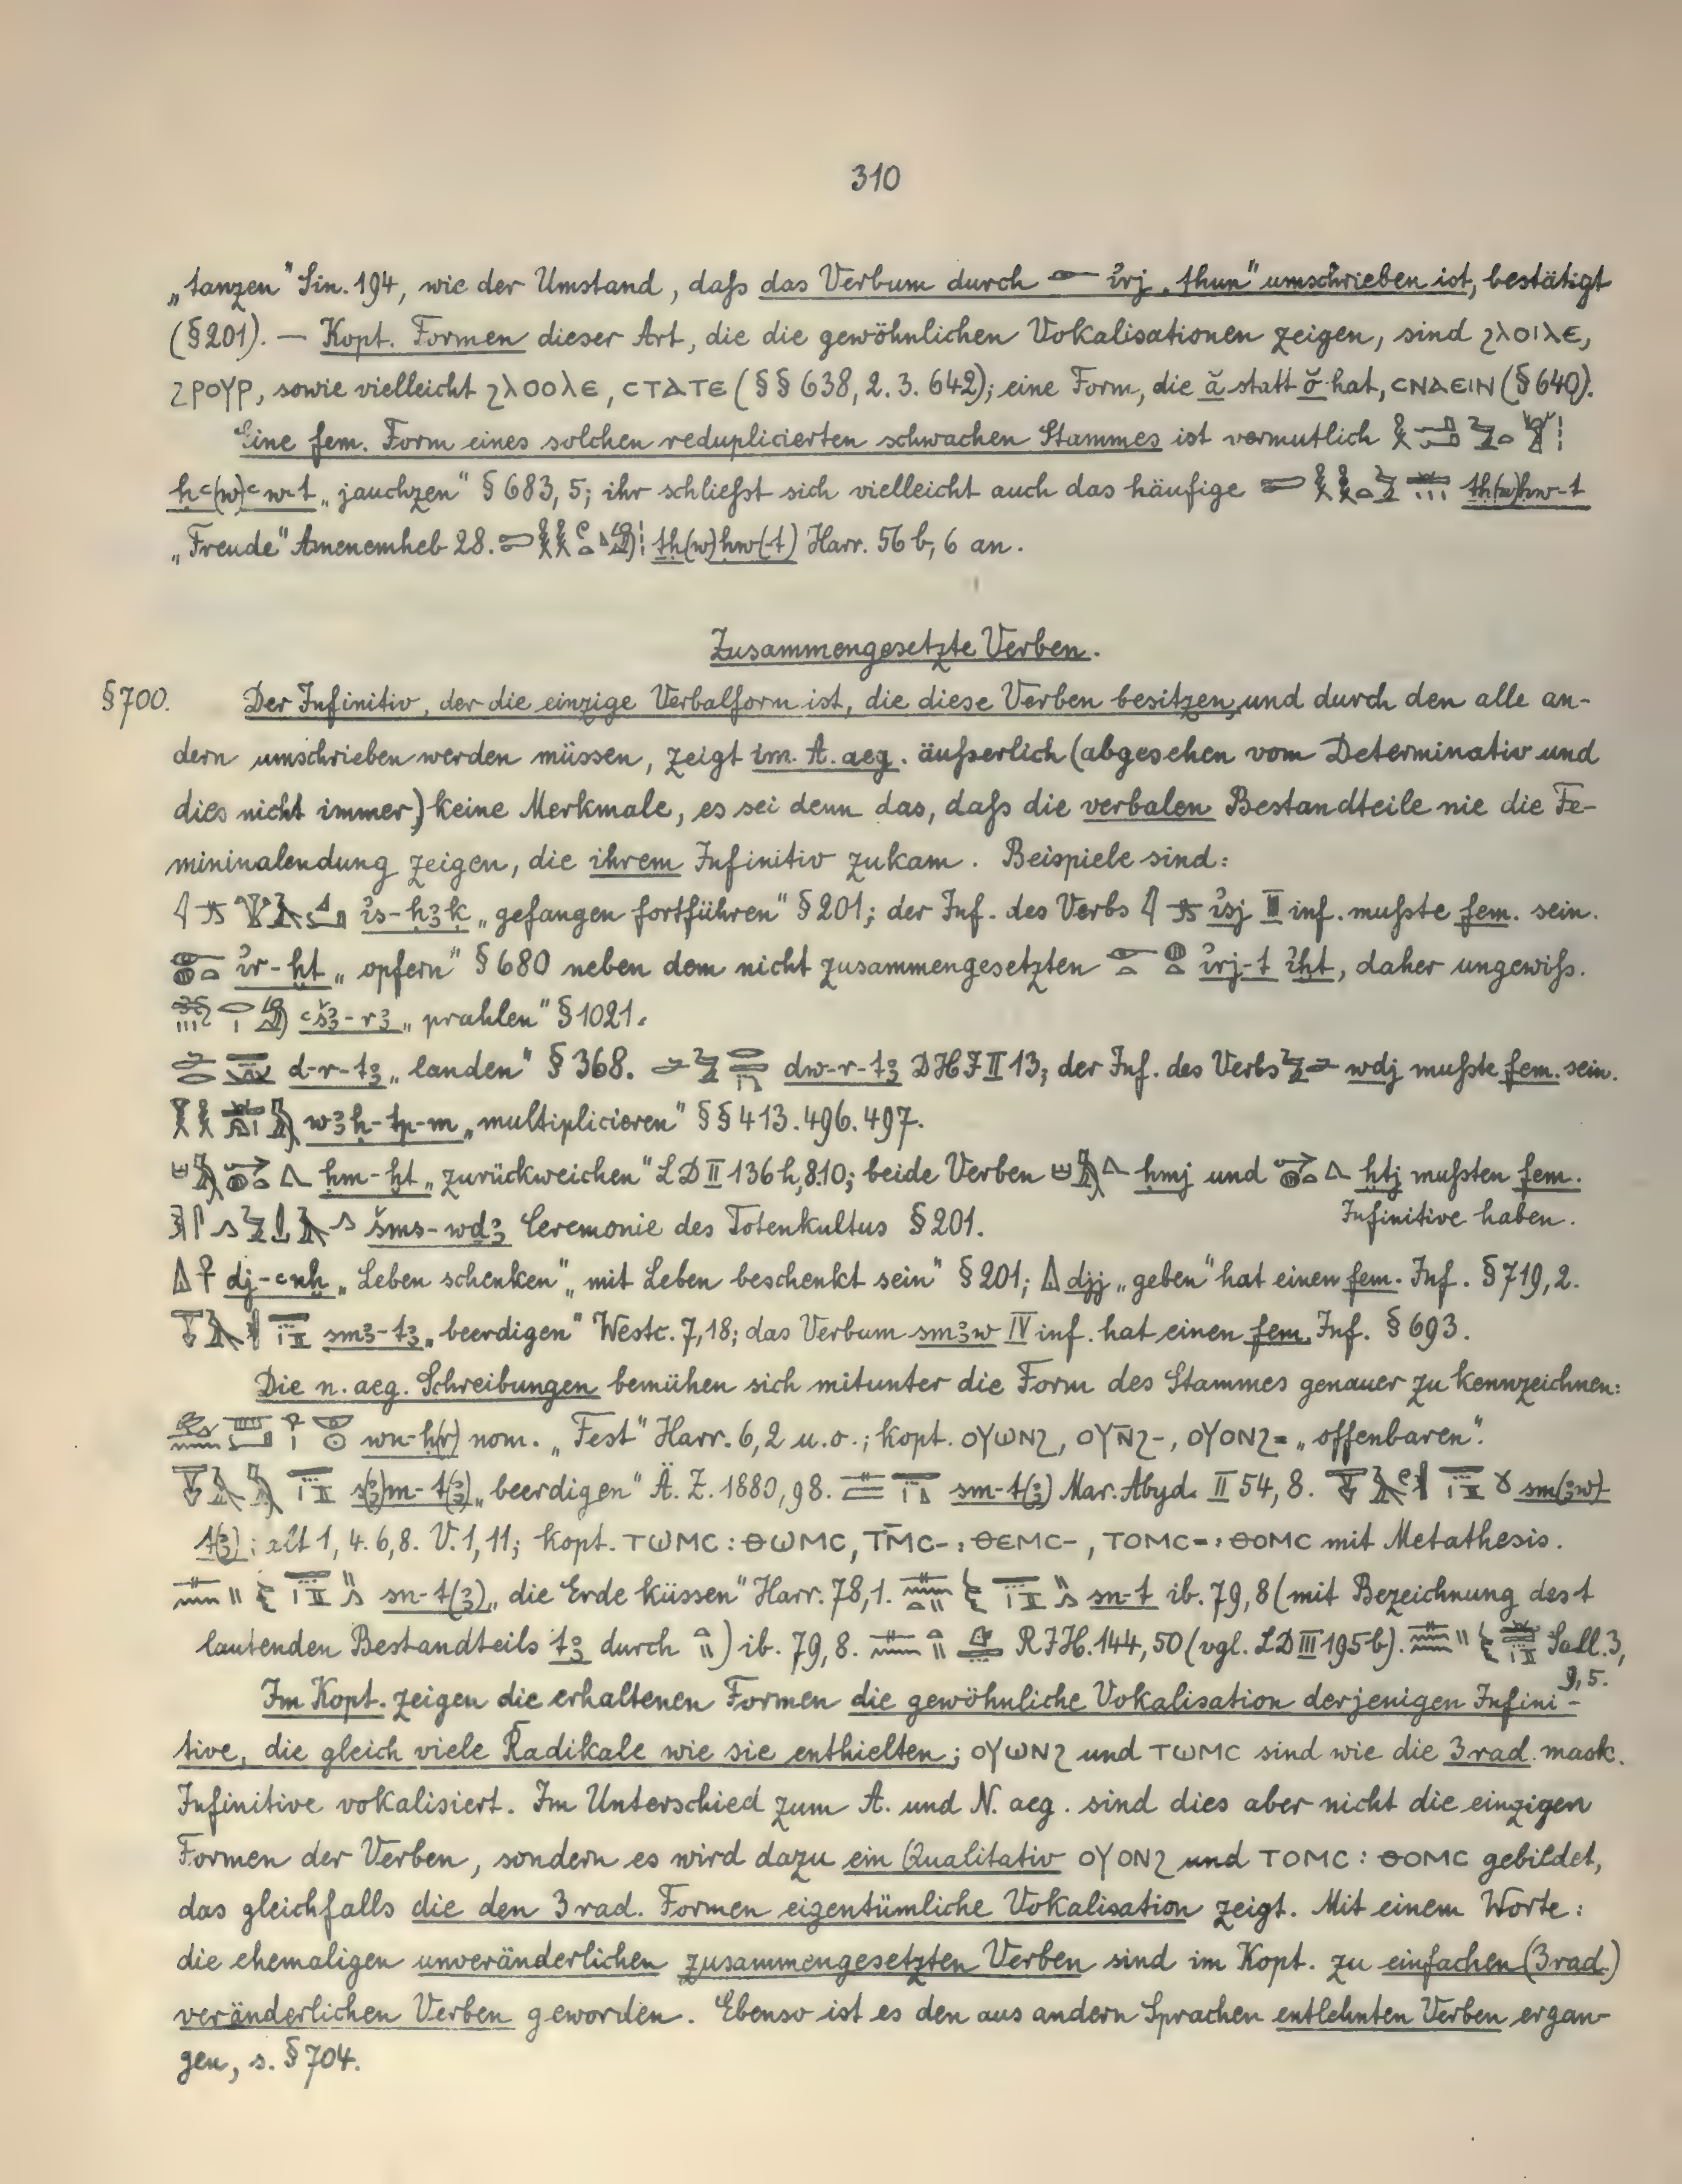 310
„tanzen“ Sin. 194, wie der Umstand, daß das Verbum durch 𓁹 ỉrj „thun“ umschrieben ist, bestätigt
(§ 201). — Kopt. Formen dieser Art, die die gewöhnlichen Vokalisationen zeigen, sind ϩⲗⲟⲓⲗⲉ,
ϩⲣⲟⲩⲣ, sowie vielleicht ϩⲗⲟⲟⲗⲉ, ⲥⲧⲁⲧⲉ (§§ 638, 2. 3. 642); eine Form, die ă statt ŏ hat, ⲥⲛⲁⲉⲓⲛ (§ 640).
Eine fem. Form eines solchen reduplicierten schwachen Stammes ist vermutlich
ḥꜥ(w)ꜥw-t „jauchzen“ § 683, 5; ihr schließt sich vielleicht auch das häufige tḥ(w)ḥw-t
„Freude“ Amenemheb 28. tḥ(w)ḥw(t) Harr. 56 b, 6 an.
Zusammengesetzte Verben.
§ 700. Der Infinitiv, der die einzige Verbalform ist, die diese Verben besitzen, und durch den alle an-
dern umschrieben werden müssen, zeigt im A. aeg. äußerlich (abgesehen vom Determinativ und
dies nicht immer) keine Merkmale, es sei denn das, daß die verbalen Bestandteile nie die Fe-
mininalendung zeigen, die ihrem Infinitiv zukam. Beispiele sind:
ỉs-ḥꜣḳ „gefangen fortführen“ § 201; der Inf. des Verbs ỉsj III inf. mußte fem. sein.
ỉr-ḫt „opfern“ § 680 neben dem nicht zusammengesetzten ỉrj-t ỉḫt, daher ungewiß.
ꜥšꜣ-rꜣ „prahlen“ § 1021.
d-r-tꜣ „landen“ § 368. dw-r-tꜣ DHJ II 13; der Inf. des Verbs wdj mußte fem. sein.
wꜣḥ-tp-m „multiplicieren“ §§ 413. 496. 497.
ḥm-ḫt „zurückweichen“ LD II 136 h, 8.10; beide Verben ḥmj und ḫtj mußten fem.
Infinitive haben.
šms-wḏꜣ Ceremonie des Totenkultus § 201.
dj-ꜥnḫ „Leben schenken“ „mit Leben beschenkt sein“ § 201; djj „geben“ hat einen fem. Inf. § 719, 2.
smꜣ-tꜣ „beerdigen“ Westc. 7, 18; das Verbum smꜣw IV inf. hat einen fem. Inf. § 693.
Die n. aeg. Schreibungen bemühen sich mitunter die Form des Stammes genauer zu kennzeichnen:
wn-ḥ(r) nom. „Fest“ Harr. 6, 2 u. o.; kopt. ⲟⲩⲱⲛϩ, ⲟⲩⲛ̄ϩ-, ⲟⲩⲟⲛϩ= „offenbaren“.
s(ꜣ)m-t(ꜣ) „beerdigen“ Ä. Z. 1880, 98. sm-t(ꜣ) Mar. Abyd. II 54, 8. sm(ꜣw)-
t(ꜣ): 1, 4. 6, 8. V. 1, 11; kopt. ⲧⲱⲙⲥ : ⲑⲱⲙⲥ, ⲧⲙ̄ⲥ- : ⲑⲉⲙⲥ-, ⲧⲟⲙⲥ= : ⲑⲟⲙⲥ mit Metathesis.
sn-t(ꜣ) „die Erde küssen“ Harr. 78, 1. sn-t ib. 79, 8 (mit Bezeichnung des t
lautenden Bestandteils tꜣ durch ) ib. 79, 8. RJH. 144, 50 (vgl. LD III 195 b). Sall. 3,
9, 5.
Im Kopt. zeigen die erhaltenen Formen die gewöhnliche Vokalisation derjenigen Infini-
tive, die gleich viele Radikale wie sie enthielten; ⲟⲩⲱⲛϩ und ⲧⲱⲙⲥ sind wie die 3 rad. mask.
Infinitive vokalisiert. Im Unterschied zum A. und N. aeg. sind dies aber nicht die einzigen
Formen der Verben, sondern es wird dazu ein Qualitativ ⲟⲩⲟⲛϩ und ⲧⲟⲙⲥ : ⲑⲟⲙⲥ gebildet,
das gleichfalls die den 3 rad. Formen eigentümliche Vokalisation zeigt. Mit einem Worte:
die ehemaligen unveränderlichen zusammengesetzten Verben sind im Kopt. zu einfachen (3 rad.)
veränderlichen Verben geworden. Ebenso ist es den aus andern Sprachen entlehnten Verben ergan-
gen, s. § 704.